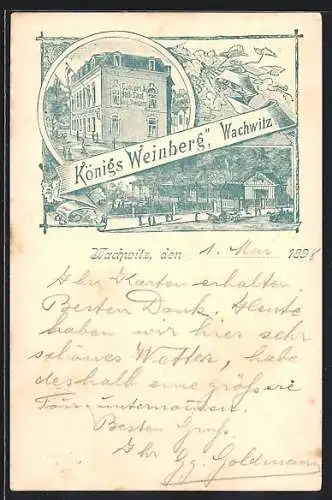 Königs Weinberg", Wachwitz.
Wachwitz, den 1. Mai 1898
Ihr Karten erhalten.
Besten Dank. Heute
haben wir hier sehr
schönes Wetter, habe
deshalb eine größere
Tour unternommen.
Besten Gruß
Ihr
Gg. Goldmann